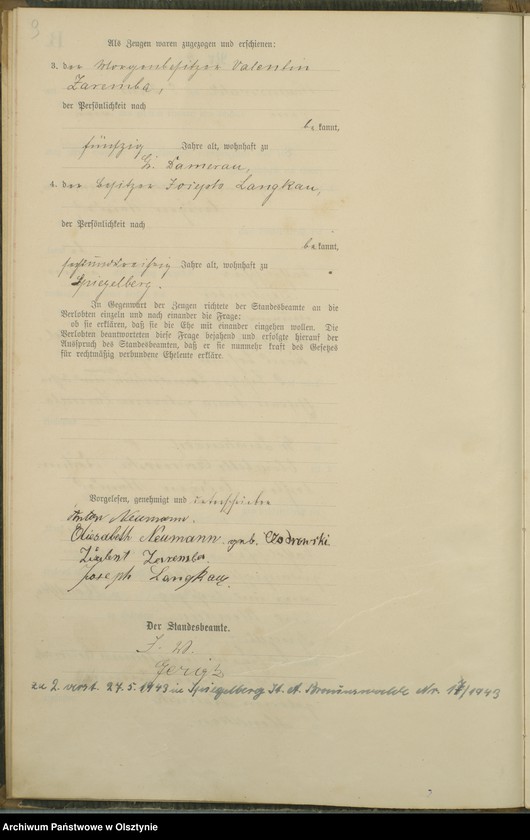 Als Zeugen waren zugezogen und erschienen:
3. der Morgenbesitzer Valentin
Zaremba,
der Persönlichkeit nach
be kannt,
fünfzig Jahre alt, wohnhaft zu
Gr. Damerau,
4. der Besitzer Joseph Langkau,
der Persönlichkeit nach
be kannt,
sechsunddreißig Jahre alt, wohnhaft zu
Spiegelberg.
In Gegenwart der Zeugen richtete der Standesbeamte an die
Verlobten einzeln und nach einander die Frage:
ob sie erklären, daß sie die Ehe mit einander eingehen wollen. Die
Verlobten beantworteten diese Frage bejahend und erfolgte hierauf der
Ausspruch des Standesbeamten, daß er sie nunmehr kraft des Gesetzes
für rechtmäßig verbundene Eheleute erkläre.
Vorgelesen, genehmigt und unterschrieben
Anton Neumann.
Elisabeth Neumann geb. Czodrowski.
Zaremba
Joseph Langkau.
Der Standesbeamte.
J. V.
Gerigk
zu 2. verst. 27.5.1943 in Spiegelberg St. A. Braunswalde Nr. /1943
Archiwum Państwowe w Olsztynie